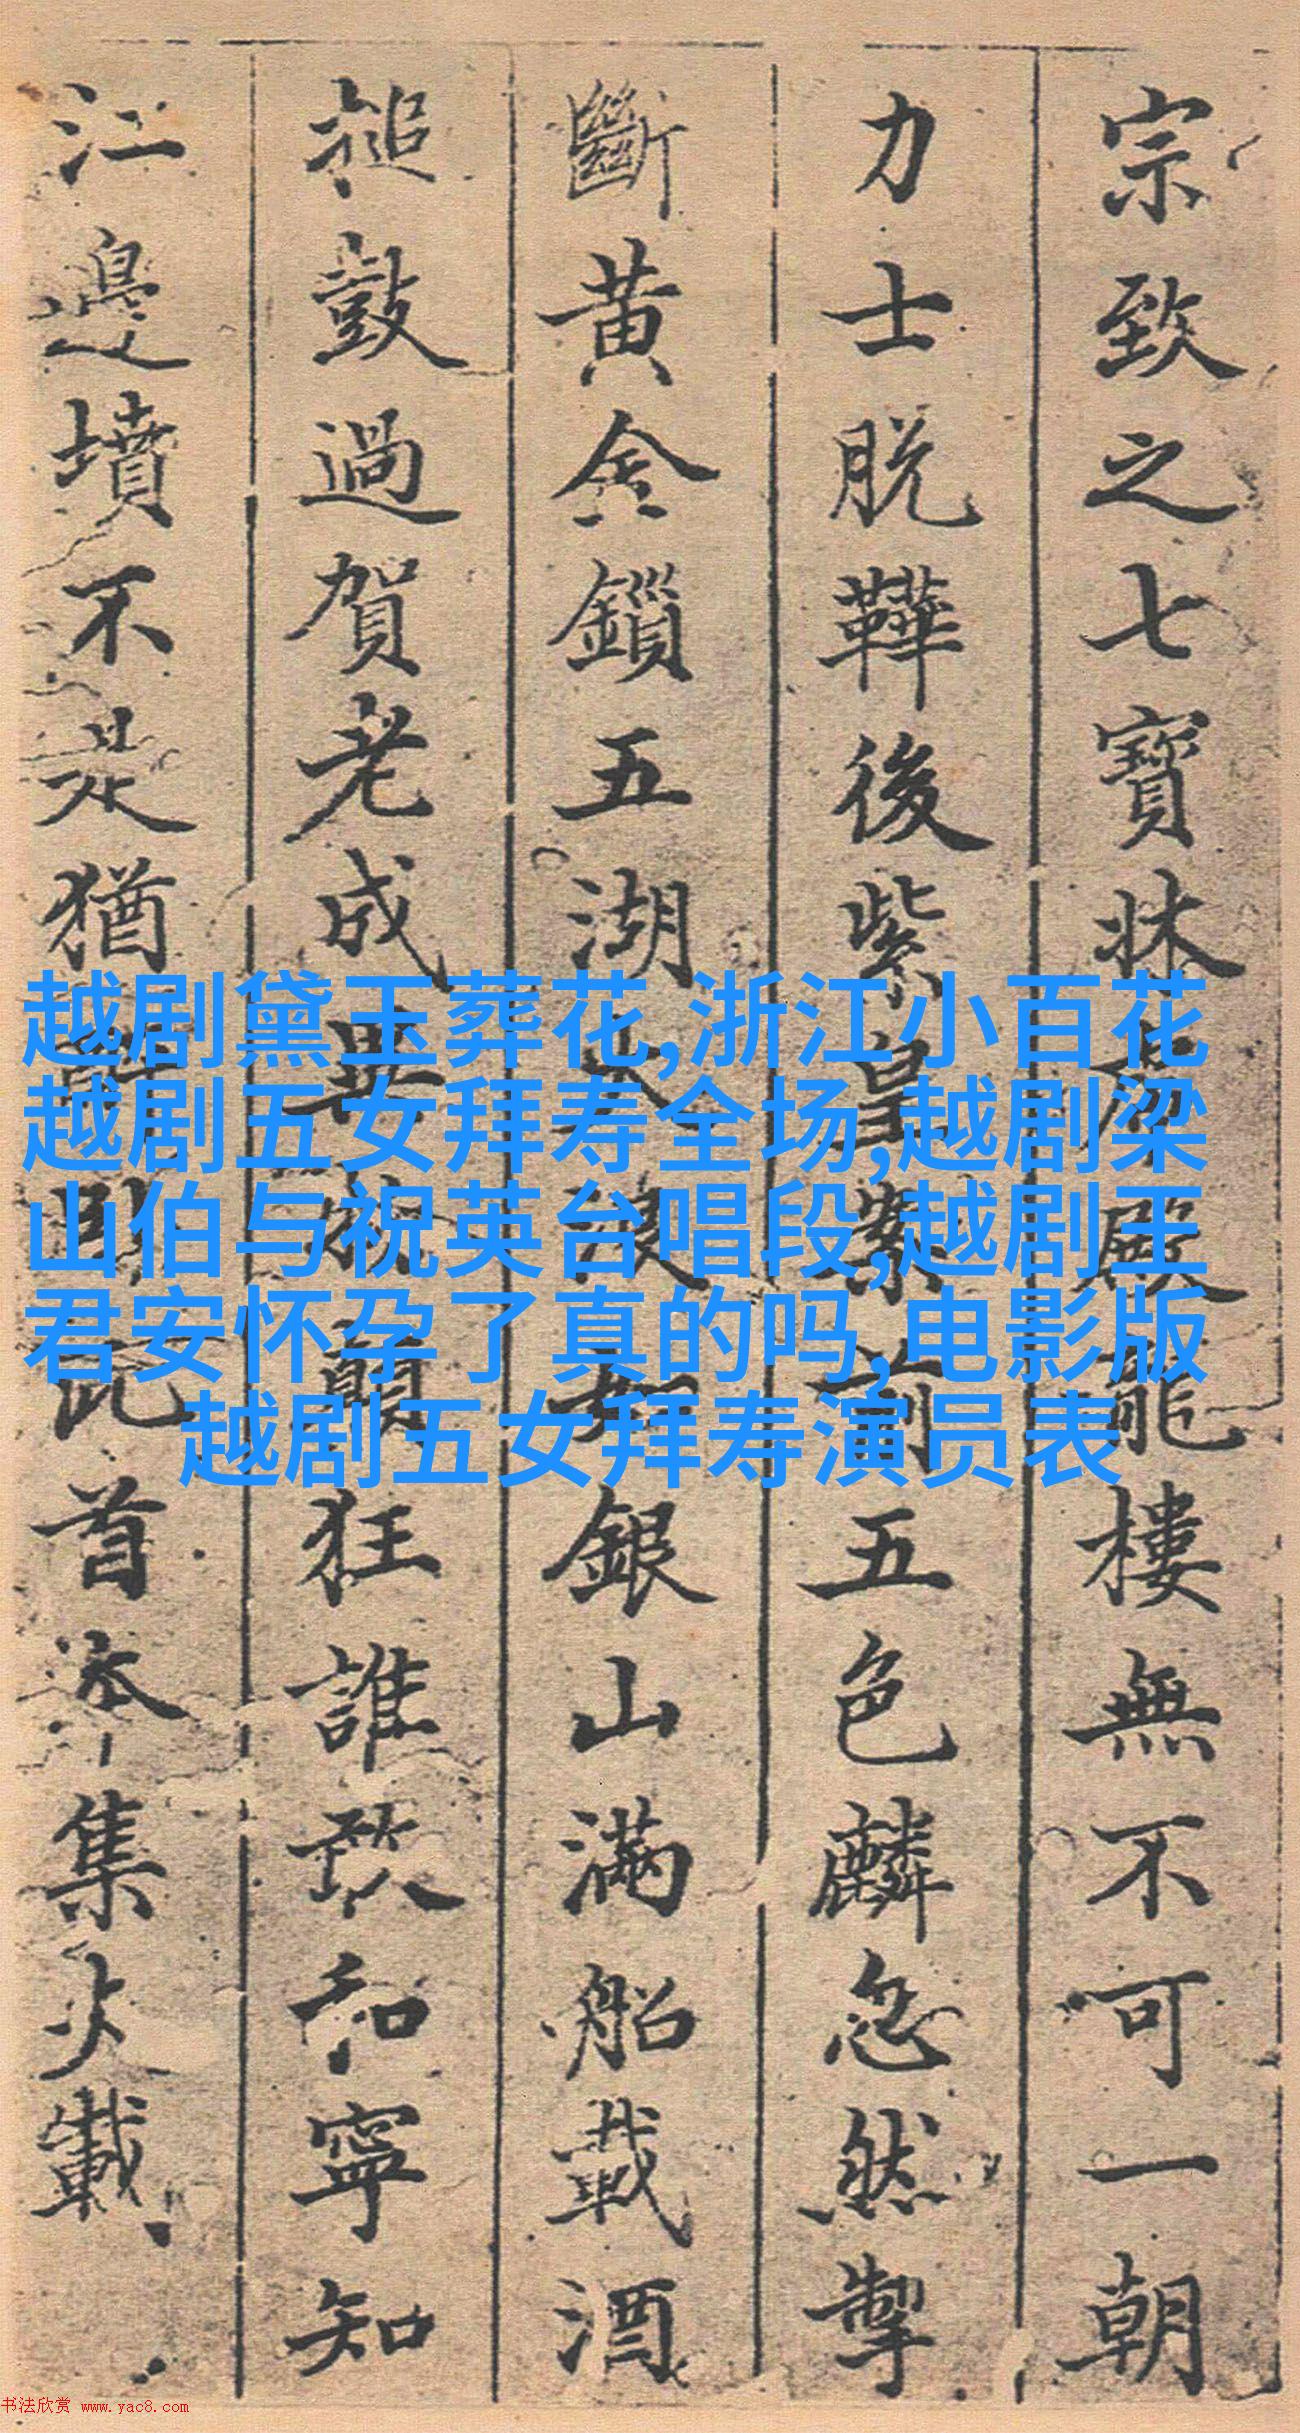 宗致之七寶牀虎殿龍樓無不可一朝
力士脫鞾後紫皇案前五色麟忽然掣
斷黃金鎖五湖大浪如銀山滿船載酒
搥鼓過賀老成異物顛狂誰敢和寧知
江邊墳不是猶醉臥此首本集載
越剧黛玉葬花,浙江小百花
越剧五女拜寿全场,越剧梁
山伯与祝英台唱段,越剧王
君安怀孕了真的吗,电影版
越剧五女拜寿演员表
书法欣赏 www.yac8.com